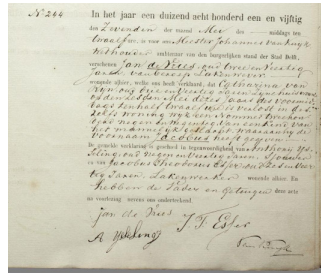 No 244
In het jaar een duizend acht honderd een en vijftig
den Zevenden der maand Mei des middags ten
twaalf ure, is voor ons Meester Johannes van Kuyk
Wethouder ambtenaar van den burgerlijken stand der Stad Delft,
verschenen Jan de Vries, oud twee en veertig
Jaren, van beroep
wonende alhier, welke ons heeft verklaard, dat Catharina van
oud drie en veertig Jaren, zijne huisvrouw
op den zesden Mei dezes jaars des voormid
dags ten half twaalf ure is bevallen in
zelfs woning wijk een Nommer twee hon
derd negen en veertig, van een kind van
het mannelijk geslacht, waaraan hij de
voornaam Jacobus heeft gegeven
De gemelde verklaring is geschied in tegenwoordigheid van Anthonij
oud negen en veertig jaren,
en van Jacobus Theodorus Esser oud zes en veer
tig Jaren, wonende alhier. En
hebben de Vader en Getuigen deze acte
na voorlezing nevens ons onderteekend.
Jan de Vries
J T Esser
A